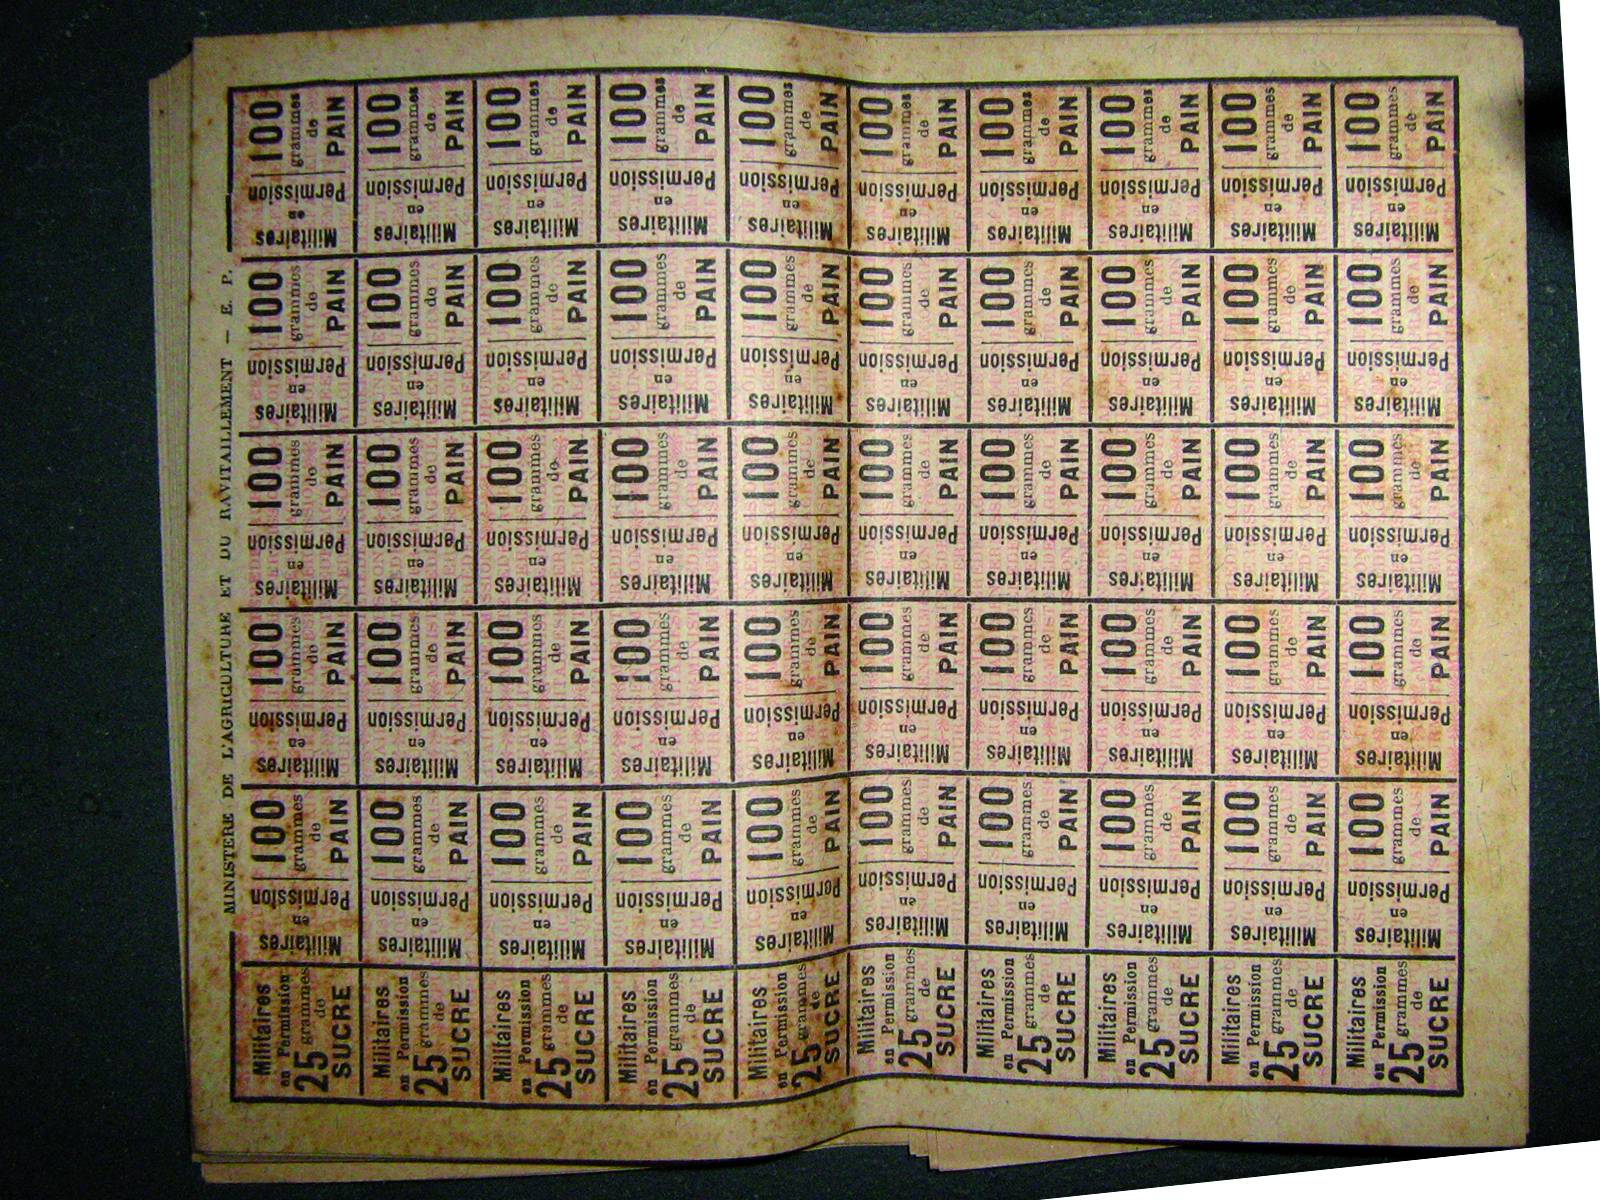 MINISTERE DE L'AGRICULTURE ET DU RAVITAILLEMENT — E. P.
Militaires en Permission 25 grammes de SUCRE
Militaires en Permission 100 grammes de PAIN
Militaires en Permission 100 grammes de PAIN
Militaires en Permission 100 grammes de PAIN
Militaires en Permission 100 grammes de PAIN
Militaires en Permission 100 grammes de PAIN
Militaires en Permission 25 grammes de SUCRE
Militaires en Permission 100 grammes de PAIN
Militaires en Permission 100 grammes de PAIN
Militaires en Permission 100 grammes de PAIN
Militaires en Permission 100 grammes de PAIN
Militaires en Permission 100 grammes de PAIN
Militaires en Permission 25 grammes de SUCRE
Militaires en Permission 100 grammes de PAIN
Militaires en Permission 100 grammes de PAIN
Militaires en Permission 100 grammes de PAIN
Militaires en Permission 100 grammes de PAIN
Militaires en Permission 100 grammes de PAIN
Militaires en Permission 25 grammes de SUCRE
Militaires en Permission 100 grammes de PAIN
Militaires en Permission 100 grammes de PAIN
Militaires en Permission 100 grammes de PAIN
Militaires en Permission 100 grammes de PAIN
Militaires en Permission 100 grammes de PAIN
Militaires en Permission 25 grammes de SUCRE
Militaires en Permission 100 grammes de PAIN
Militaires en Permission 100 grammes de PAIN
Militaires en Permission 100 grammes de PAIN
Militaires en Permission 100 grammes de PAIN
Militaires en Permission 100 grammes de PAIN
Militaires en Permission 25 grammes de SUCRE
Militaires en Permission 100 grammes de PAIN
Militaires en Permission 100 grammes de PAIN
Militaires en Permission 100 grammes de PAIN
Militaires en Permission 100 grammes de PAIN
Militaires en Permission 100 grammes de PAIN
Militaires en Permission 25 grammes de SUCRE
Militaires en Permission 100 grammes de PAIN
Militaires en Permission 100 grammes de PAIN
Militaires en Permission 100 grammes de PAIN
Militaires en Permission 100 grammes de PAIN
Militaires en Permission 100 grammes de PAIN
Militaires en Permission 25 grammes de SUCRE
Militaires en Permission 100 grammes de PAIN
Militaires en Permission 100 grammes de PAIN
Militaires en Permission 100 grammes de PAIN
Militaires en Permission 100 grammes de PAIN
Militaires en Permission 100 grammes de PAIN
Militaires en Permission 25 grammes de SUCRE
Militaires en Permission 100 grammes de PAIN
Militaires en Permission 100 grammes de PAIN
Militaires en Permission 100 grammes de PAIN
Militaires en Permission 100 grammes de PAIN
Militaires en Permission 100 grammes de PAIN
Militaires en Permission 25 grammes de SUCRE
Militaires en Permission 100 grammes de PAIN
Militaires en Permission 100 grammes de PAIN
Militaires en Permission 100 grammes de PAIN
Militaires en Permission 100 grammes de PAIN
Militaires en Permission 100 grammes de PAIN